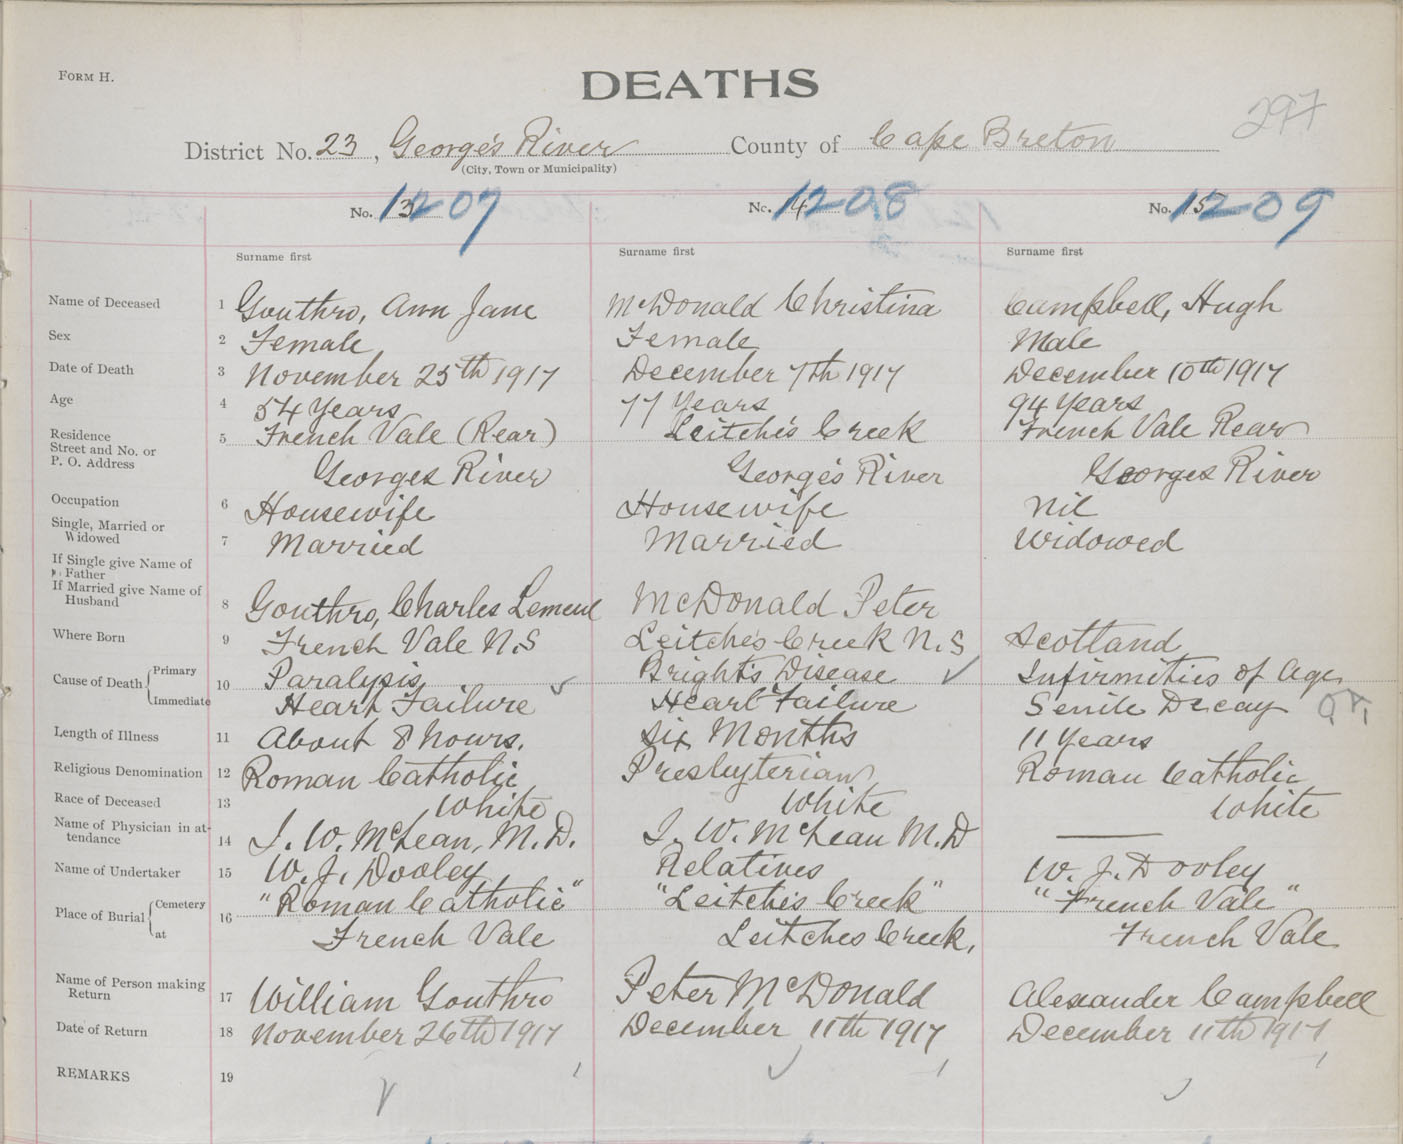 FORM H.
DEATHS
297
District No. 23, George's River County of Cape Breton
(City, Town or Municipality)
No. 13 1207 No. 14 1208 No. 15 1209
Surname first Surname first Surname first
Name of Deceased 1 Gouthro, Ann Jane McDonald Christina Campbell, Hugh
Sex 2 Female Female Male
Date of Death 3 November 25th 1917 December 7th 1917 December 10th 1917
Age 4 54 Years 77 Years 94 Years
Residence Street and No. or P. O. Address 5 French Vale (Rear) Leitche's Creek French Vale Rear
Georges River George's River Georges River
Occupation 6 Housewife Housewife Nil
Single, Married or Widowed 7 Married Married Widowed
If Single give Name of Father
If Married give Name of Husband 8 Gouthro, Charles Lemeul McDonald Peter
Where Born 9 French Vale N.S Leitche's Creek N.S Scotland
Cause of Death Primary 10 Paralysis Bright's Disease Infirmities of Age
Immediate Heart Failure Heart Failure Senile Decay
Length of Illness 11 About 8 hours. Six Months 11 Years
Religious Denomination 12 Roman Catholic Presbyterian Roman Catholic
Race of Deceased 13 White White White
Name of Physician in attendance 14 J. W. McLean, M.D. J. W. McLean M.D
Name of Undertaker 15 W. J. Dooley Relatives W. J. Dooley
Place of Burial Cemetery 16 "Roman Catholic" "Leitche's Creek" "French Vale"
at French Vale Leitches Creek, French Vale
Name of Person making Return 17 William Gouthro Peter McDonald Alexander Campbell
Date of Return 18 November 26th 1917 December 11th 1917 December 11th 1917
REMARKS 19